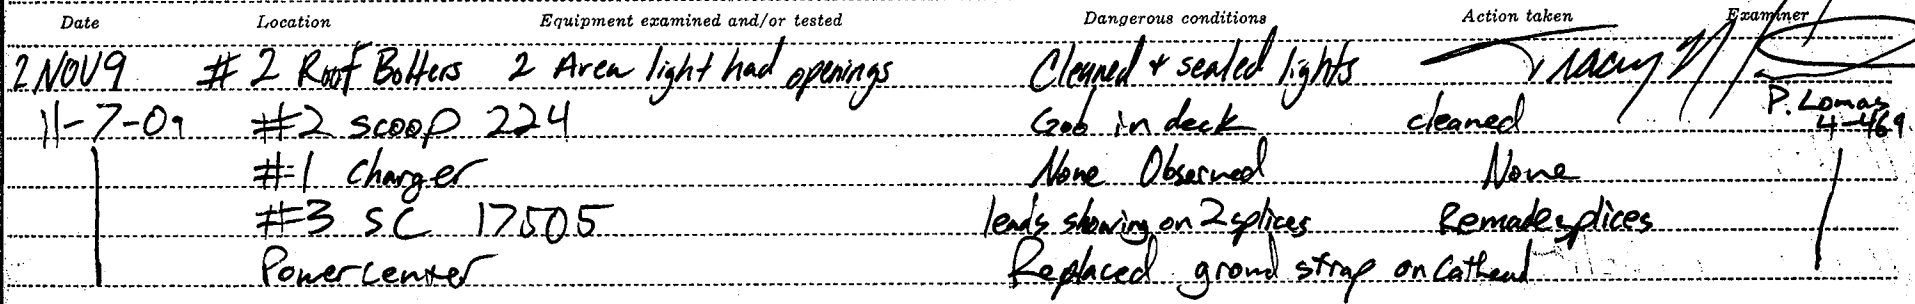 Date Location Equipment examined and/or tested Dangerous conditions Action taken Examiner
2 NOV 9 # 2 Roof Bolters 2 Area light had openings Cleaned + sealed lights Tracy
11-7-09 #2 scoop 224 Gob in deck cleaned P. Lomas 4-469
#1 Charger None Observed None
#3 SC 17505 leads showing on 2 splices Remade splices
Powercenter Replaced grond strap on Cathead